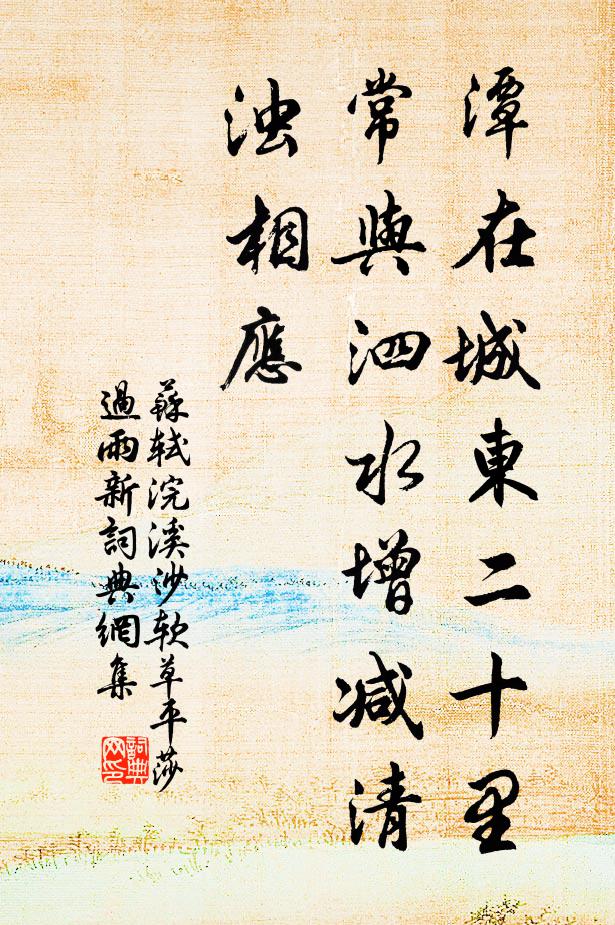 潭在城東二十里
常與泗水增减清
浊相應
蘇軾浣溪沙软草平莎
過雨新詞典網集
詞典網印